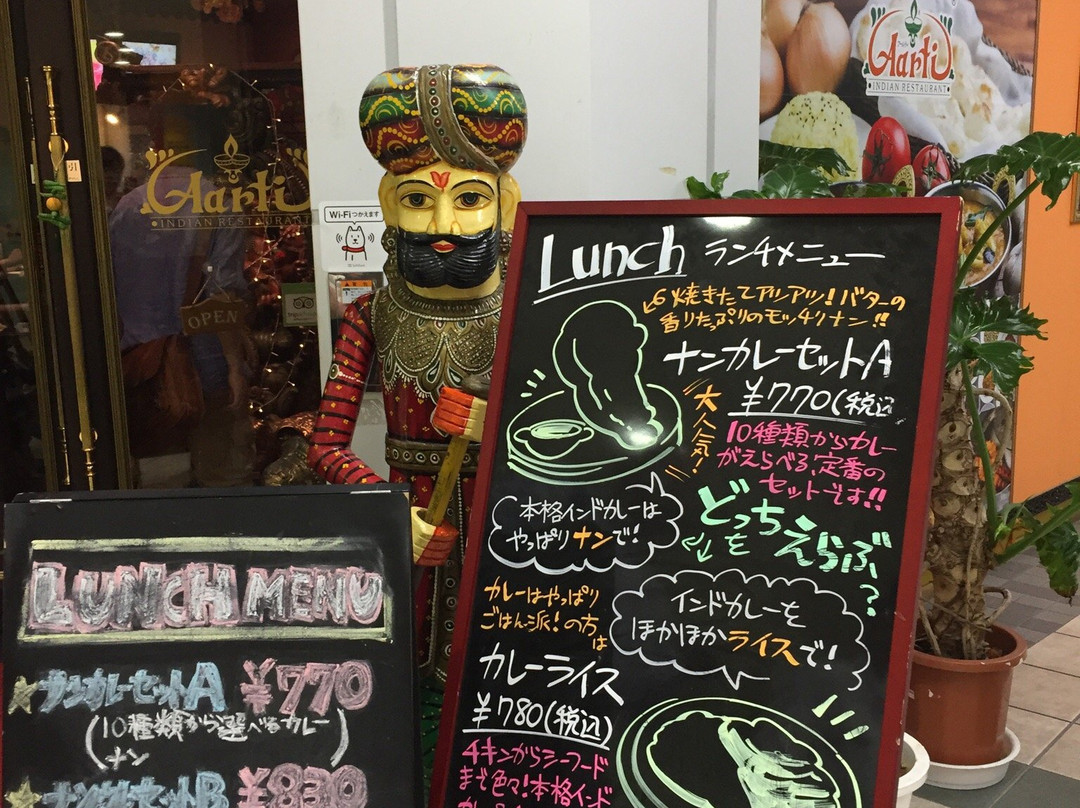 Aarti
INDIAN RESTAURANT
OPEN
Wi-Fi つかえます
Aarti
INDIAN RESTAURANT
Lunch ランチメニュー
焼きたてアツアツ!バターの
香りたっぷりのモッチリナン!!
ナンカレーセットA
¥770(税込
大人気!
10種類からカレー
がえらべる、定番の
セットです!!
本格インドカレーは
やっぱりナンで!
どっちをえらぶ?
カレーはやっぱり
ごはん派!の方は
インドカレーを
ほかほかライスで!
カレーライス
¥780(税込)
チキンからシーフード
まで色々!本格インド
LUNCH MENU
ナンカレーセットA ¥770
(10種類から選べるカレー)
ナン
ナンカレーセットB ¥830